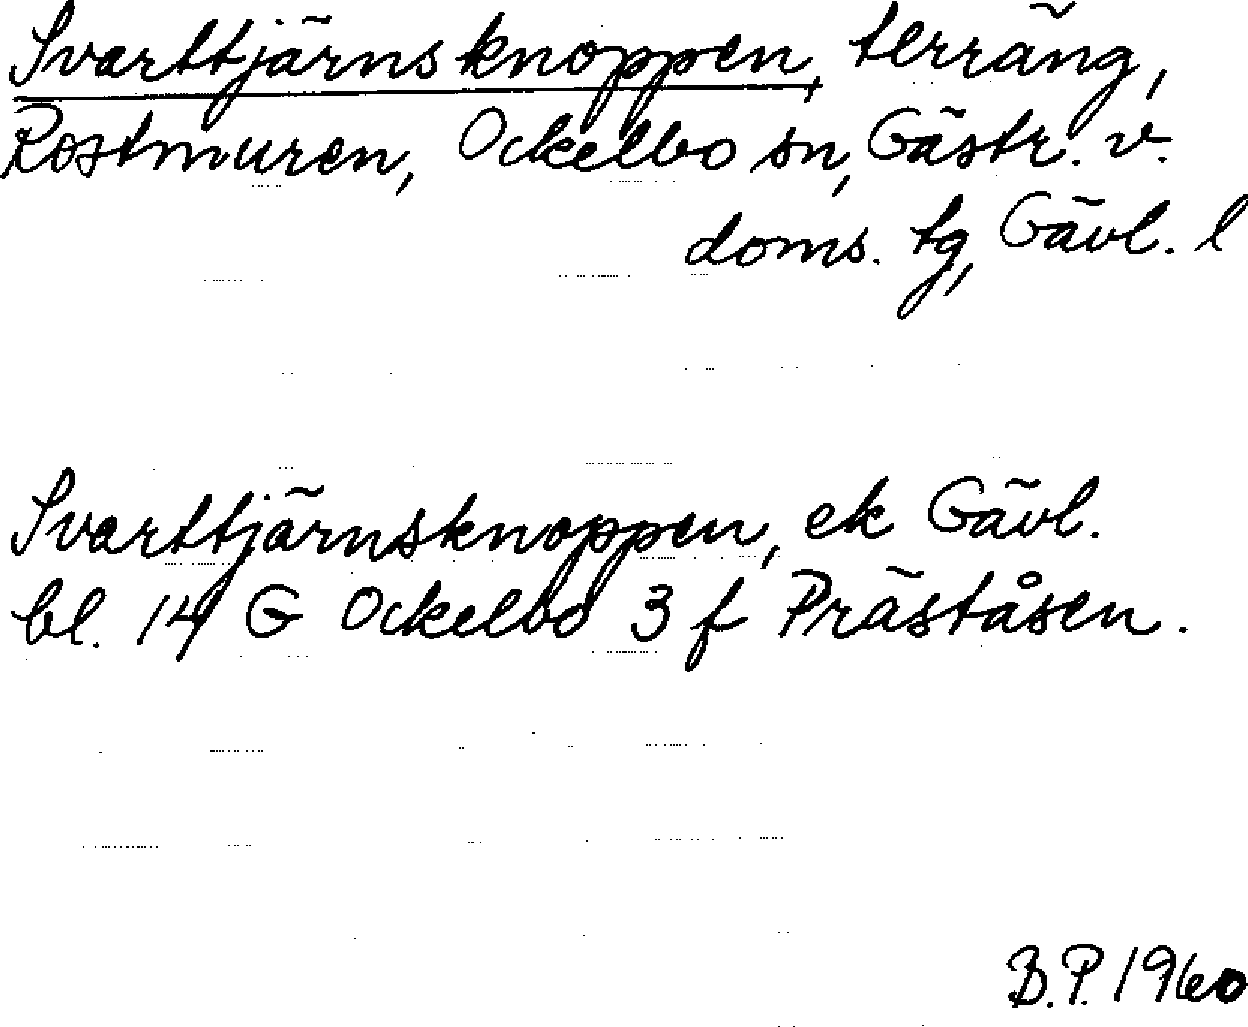 Svarttjärnsknoppen, terräng,
Rostmuren, Ockelbo sn, Gästr. v.
doms. tg, Gävl. l
Svarttjärnsknoppen, ek Gävl.
bl. 14 G Ockelbo 3 f Präståsen.
B.P. 1960